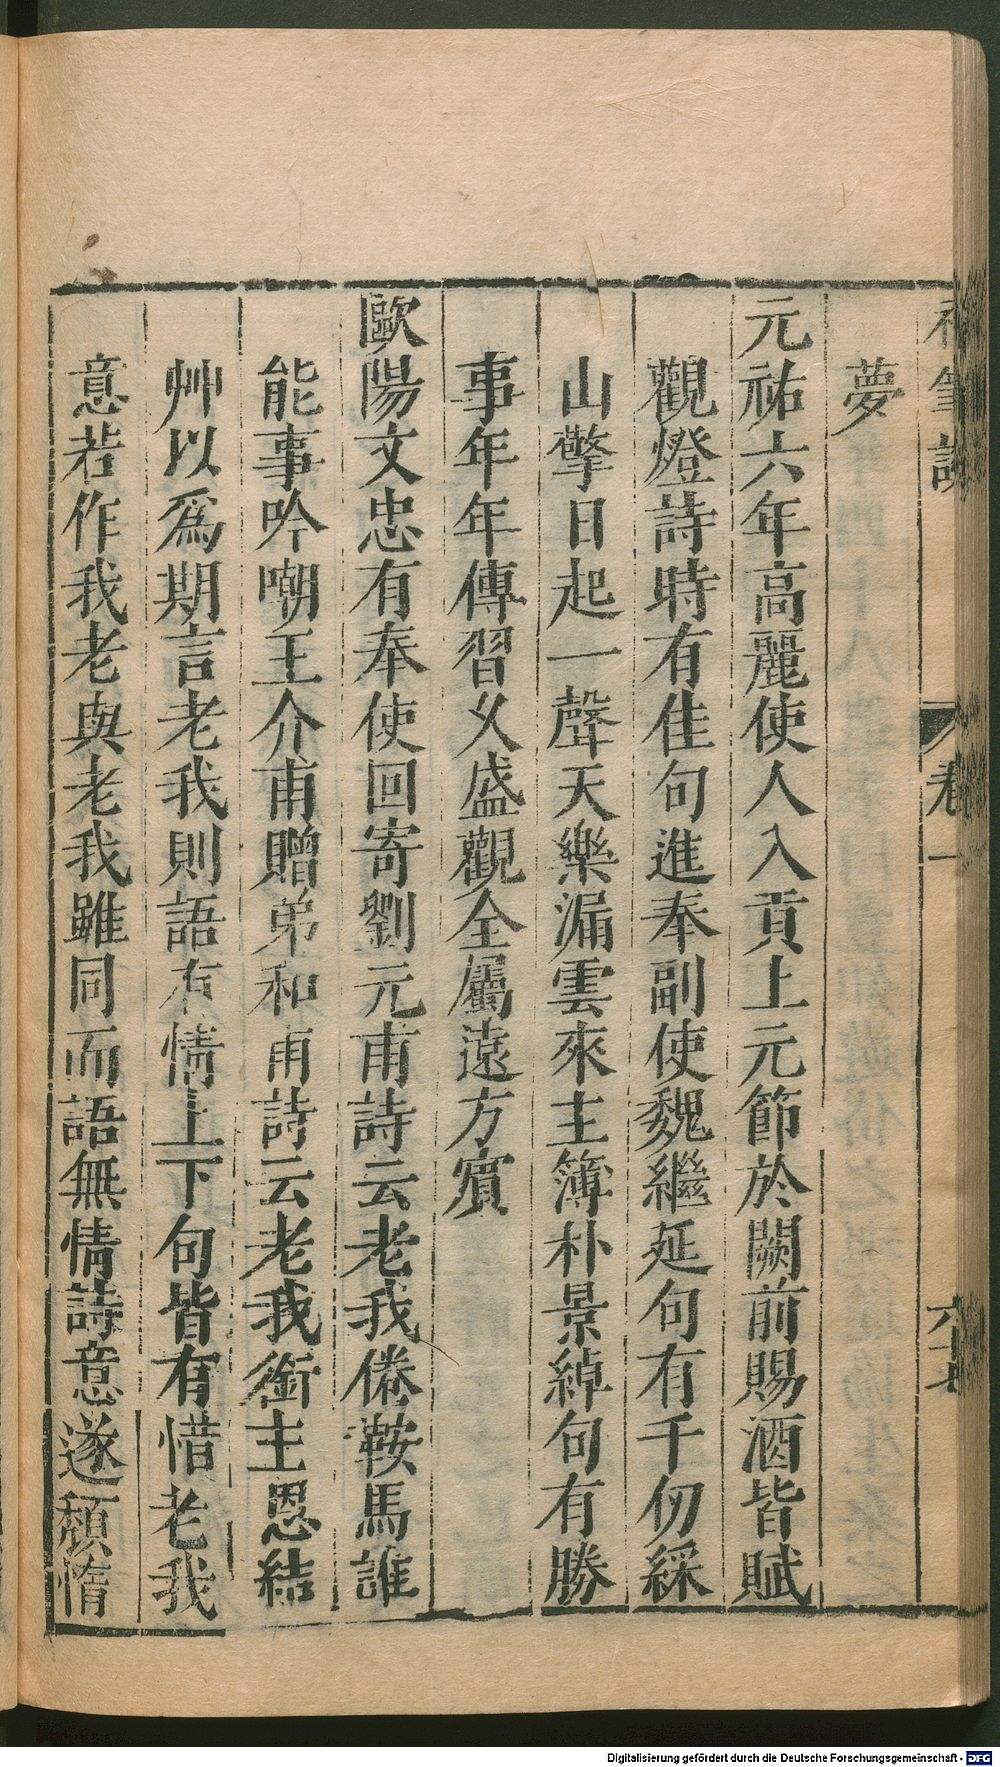 夢
元祐六年高麗使人入貢上元節於闕前賜酒皆賦
觀燈詩時有佳句進奉副使魏繼延句有千仞綵
山擎日起一聲天樂漏雲來主簿朴景綽句有勝
事年年傳習久盛觀全屬遠方賓
歐陽文忠有奉使回寄劉元甫詩云老我倦鞍馬誰
能事吟嘲王介甫贈弟和甫詩云老我銜主恩結
艸以爲期言老我則語有情上下句皆有惜老我
意若作我老與老我雖同而語無情詩意遂頹惰
卷一
六十七
Digitalisierung gefördert durch die Deutsche Forschungsgemeinschaft - DFG